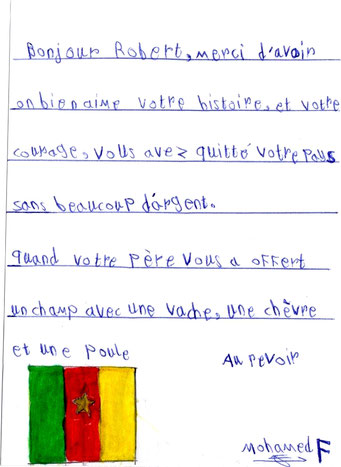 Bonjour Robert, merci d'avoir
on bien aime votre histoire, et votre
courage, vous avez quitté votre pays
sans beaucoup d'argent.
quand votre père vous a offert
un champ avec une vache, une chèvre
et une poule
Au revoir
Mohamed F